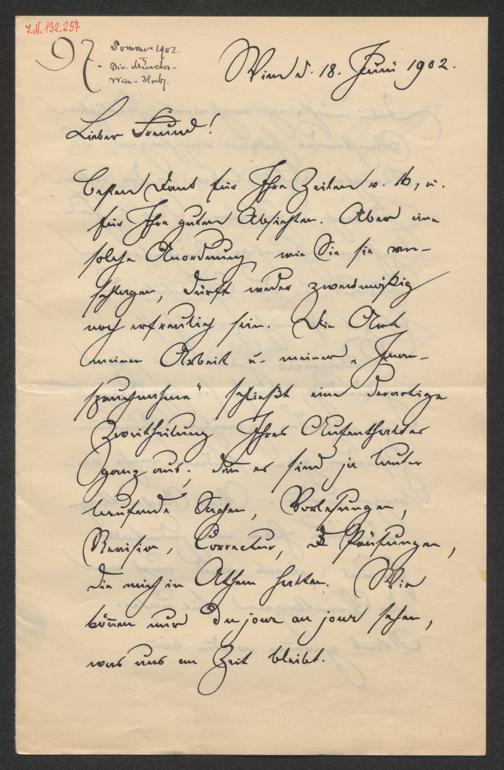 I.N. 132.257
97
Sommer 1902.
Div. München-
Wien d. 18. Juni 1902.
Lieber Freund!
Besten Dank für Ihre Zeilen v. 16, u.
für Ihre guten Absichten. Aber eine
solche Anordnung, wie Sie sie vor-
schlagen, dürft weder zweckmäßig
noch erfreulich sein. Die Art
meiner Arbeit u. meiner „Inan-
spruchnahme“ schließt eine derartige
Zweitheilung Ihres Aufenthaltes
ganz aus; denn es sind ja lauter
laufende Sachen, Vorlesungen,
Revision, Correctur, Prüfungen,
die mich in Athem halten. Wir
können nur de jour en jour sehen,
was uns an Zeit bleibt.